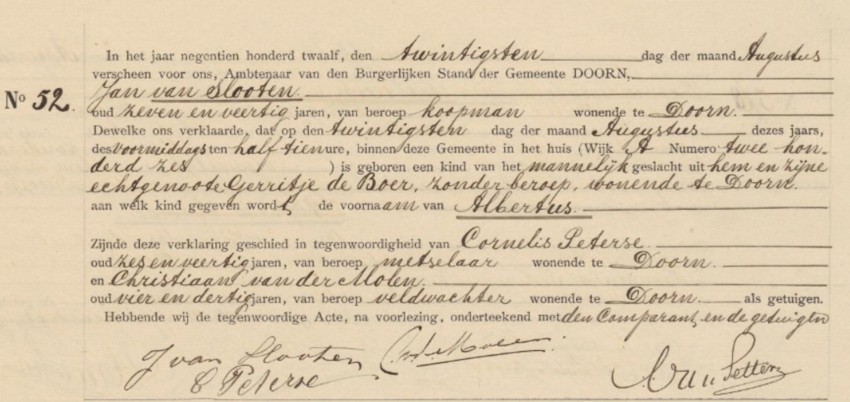 In het jaar negentien honderd twaalf, den twintigsten dag der maand Augustus
verscheen voor ons, Ambtenaar van den Burgerlijken Stand der Gemeente DOORN,
Jan van Slooten.
No 52.
oud zeven en veertig jaren, van beroep koopman wonende te Doorn.
Dewelke ons verklaarde, dat op den twintigsten dag der maand Augustus dezes jaars,
des Voormiddags ten half tien ure, binnen deze Gemeente in het huis (Wijk A Numero twee hon-
derd zes ) is geboren een kind van het mannelijk geslacht uit hem en zijne
echtgenoote Gerritje de Boer, zonder beroep, wonende te Doorn.
aan welk kind gegeven wordt de voornaam van Albertus.
Zijnde deze verklaring geschied in tegenwoordigheid van Cornelis Peterse
oud zes en veertig jaren, van beroep metselaar wonende te Doorn.
en Christiaan van der Molen.
oud vier en dertig jaren, van beroep veldwachter wonende te Doorn. als getuigen.
Hebbende wij de tegenwoordige Acte, na voorlezing, onderteekend met den Comparant en de getuigen
J van Slooten
C Peterse